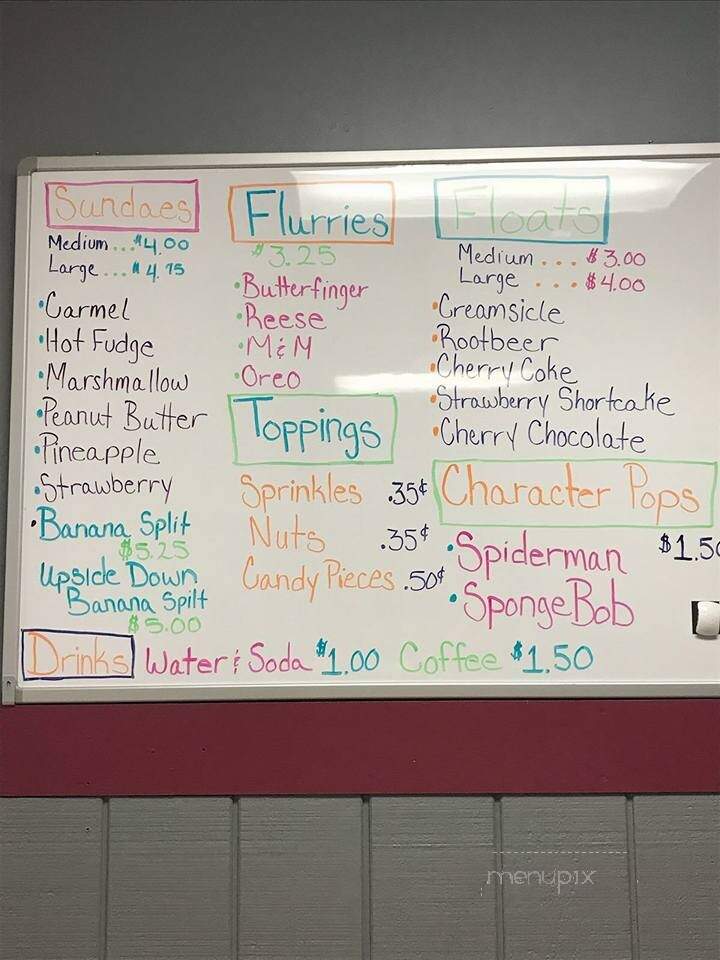 Sundaes
Medium...$4.00
Large...$4.75
•Carmel
•Hot Fudge
•Marshmallow
•Peanut Butter
•Pineapple
•Strawberry
•Banana Split
$5.25
Upside Down
Banana Spilt
$5.00
Flurries
$3.25
•Butterfinger
•Reese
•M&M
•Oreo
Toppings
Sprinkles .35¢
Nuts .35¢
Candy Pieces .50¢
Floats
Medium ... $3.00
Large ... $4.00
•Creamsicle
•Rootbeer
•Cherry Coke
•Strawberry Shortcake
•Cherry Chocolate
Character Pops
$1.50
•Spiderman
•SpongeBob
Drinks Water & Soda $1.00 Coffee $1.50
menupix